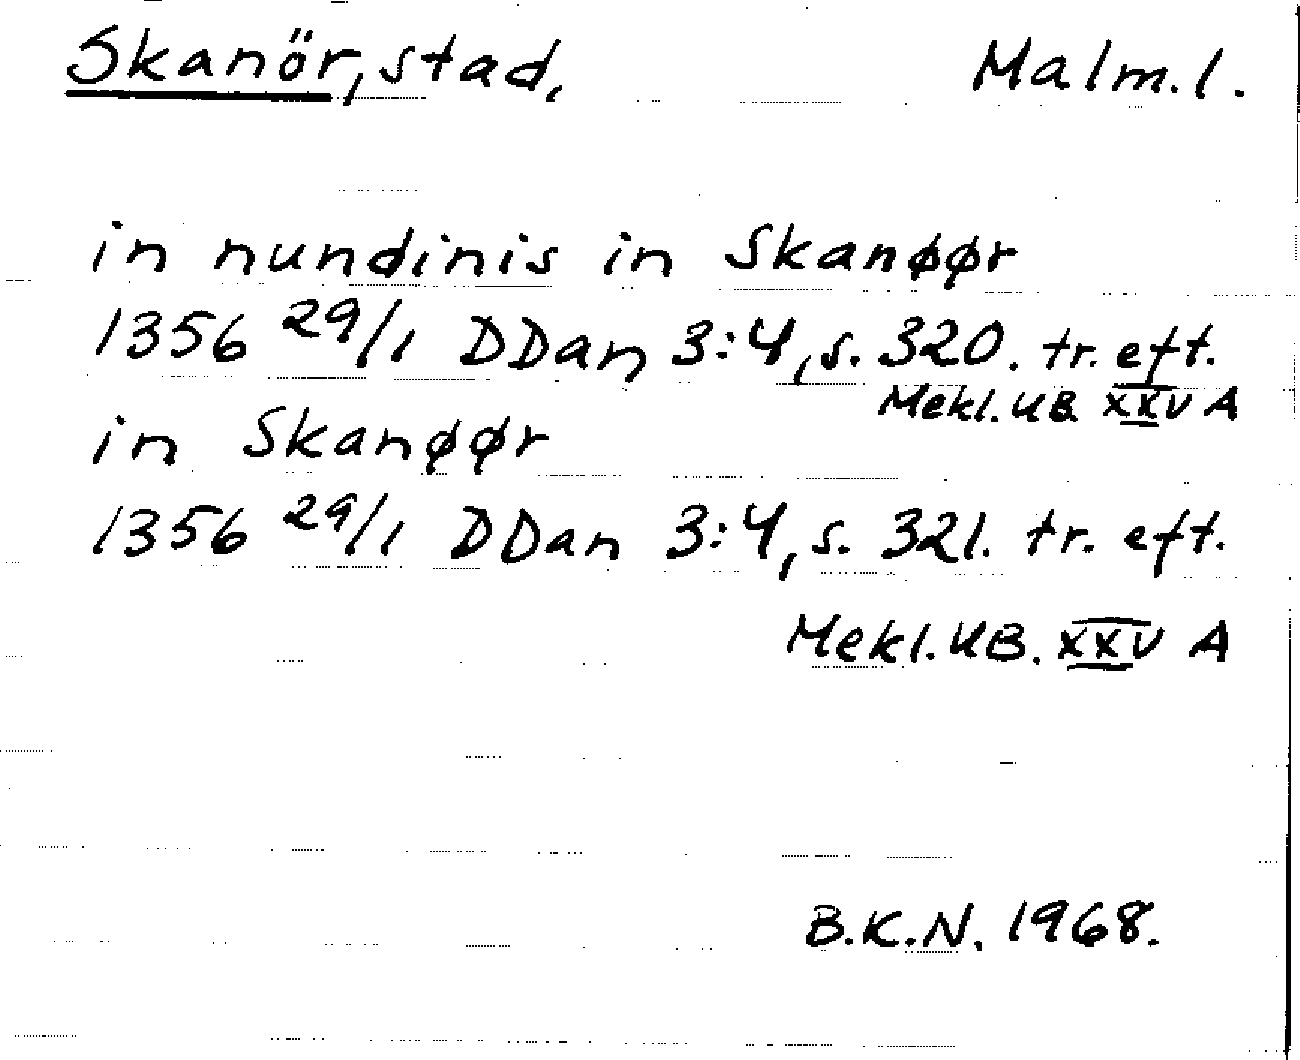 Skanör, stad, Malm.l.
in nundinis in Skanøør
1356 29/1 DDan 3:4, s. 320. tr. eft.
Mekl. UB. XXV A
in Skanøør
1356 29/1 DDan 3:4, s. 321. tr. eft.
Mekl. UB. XXV A
B.K.N. 1968.